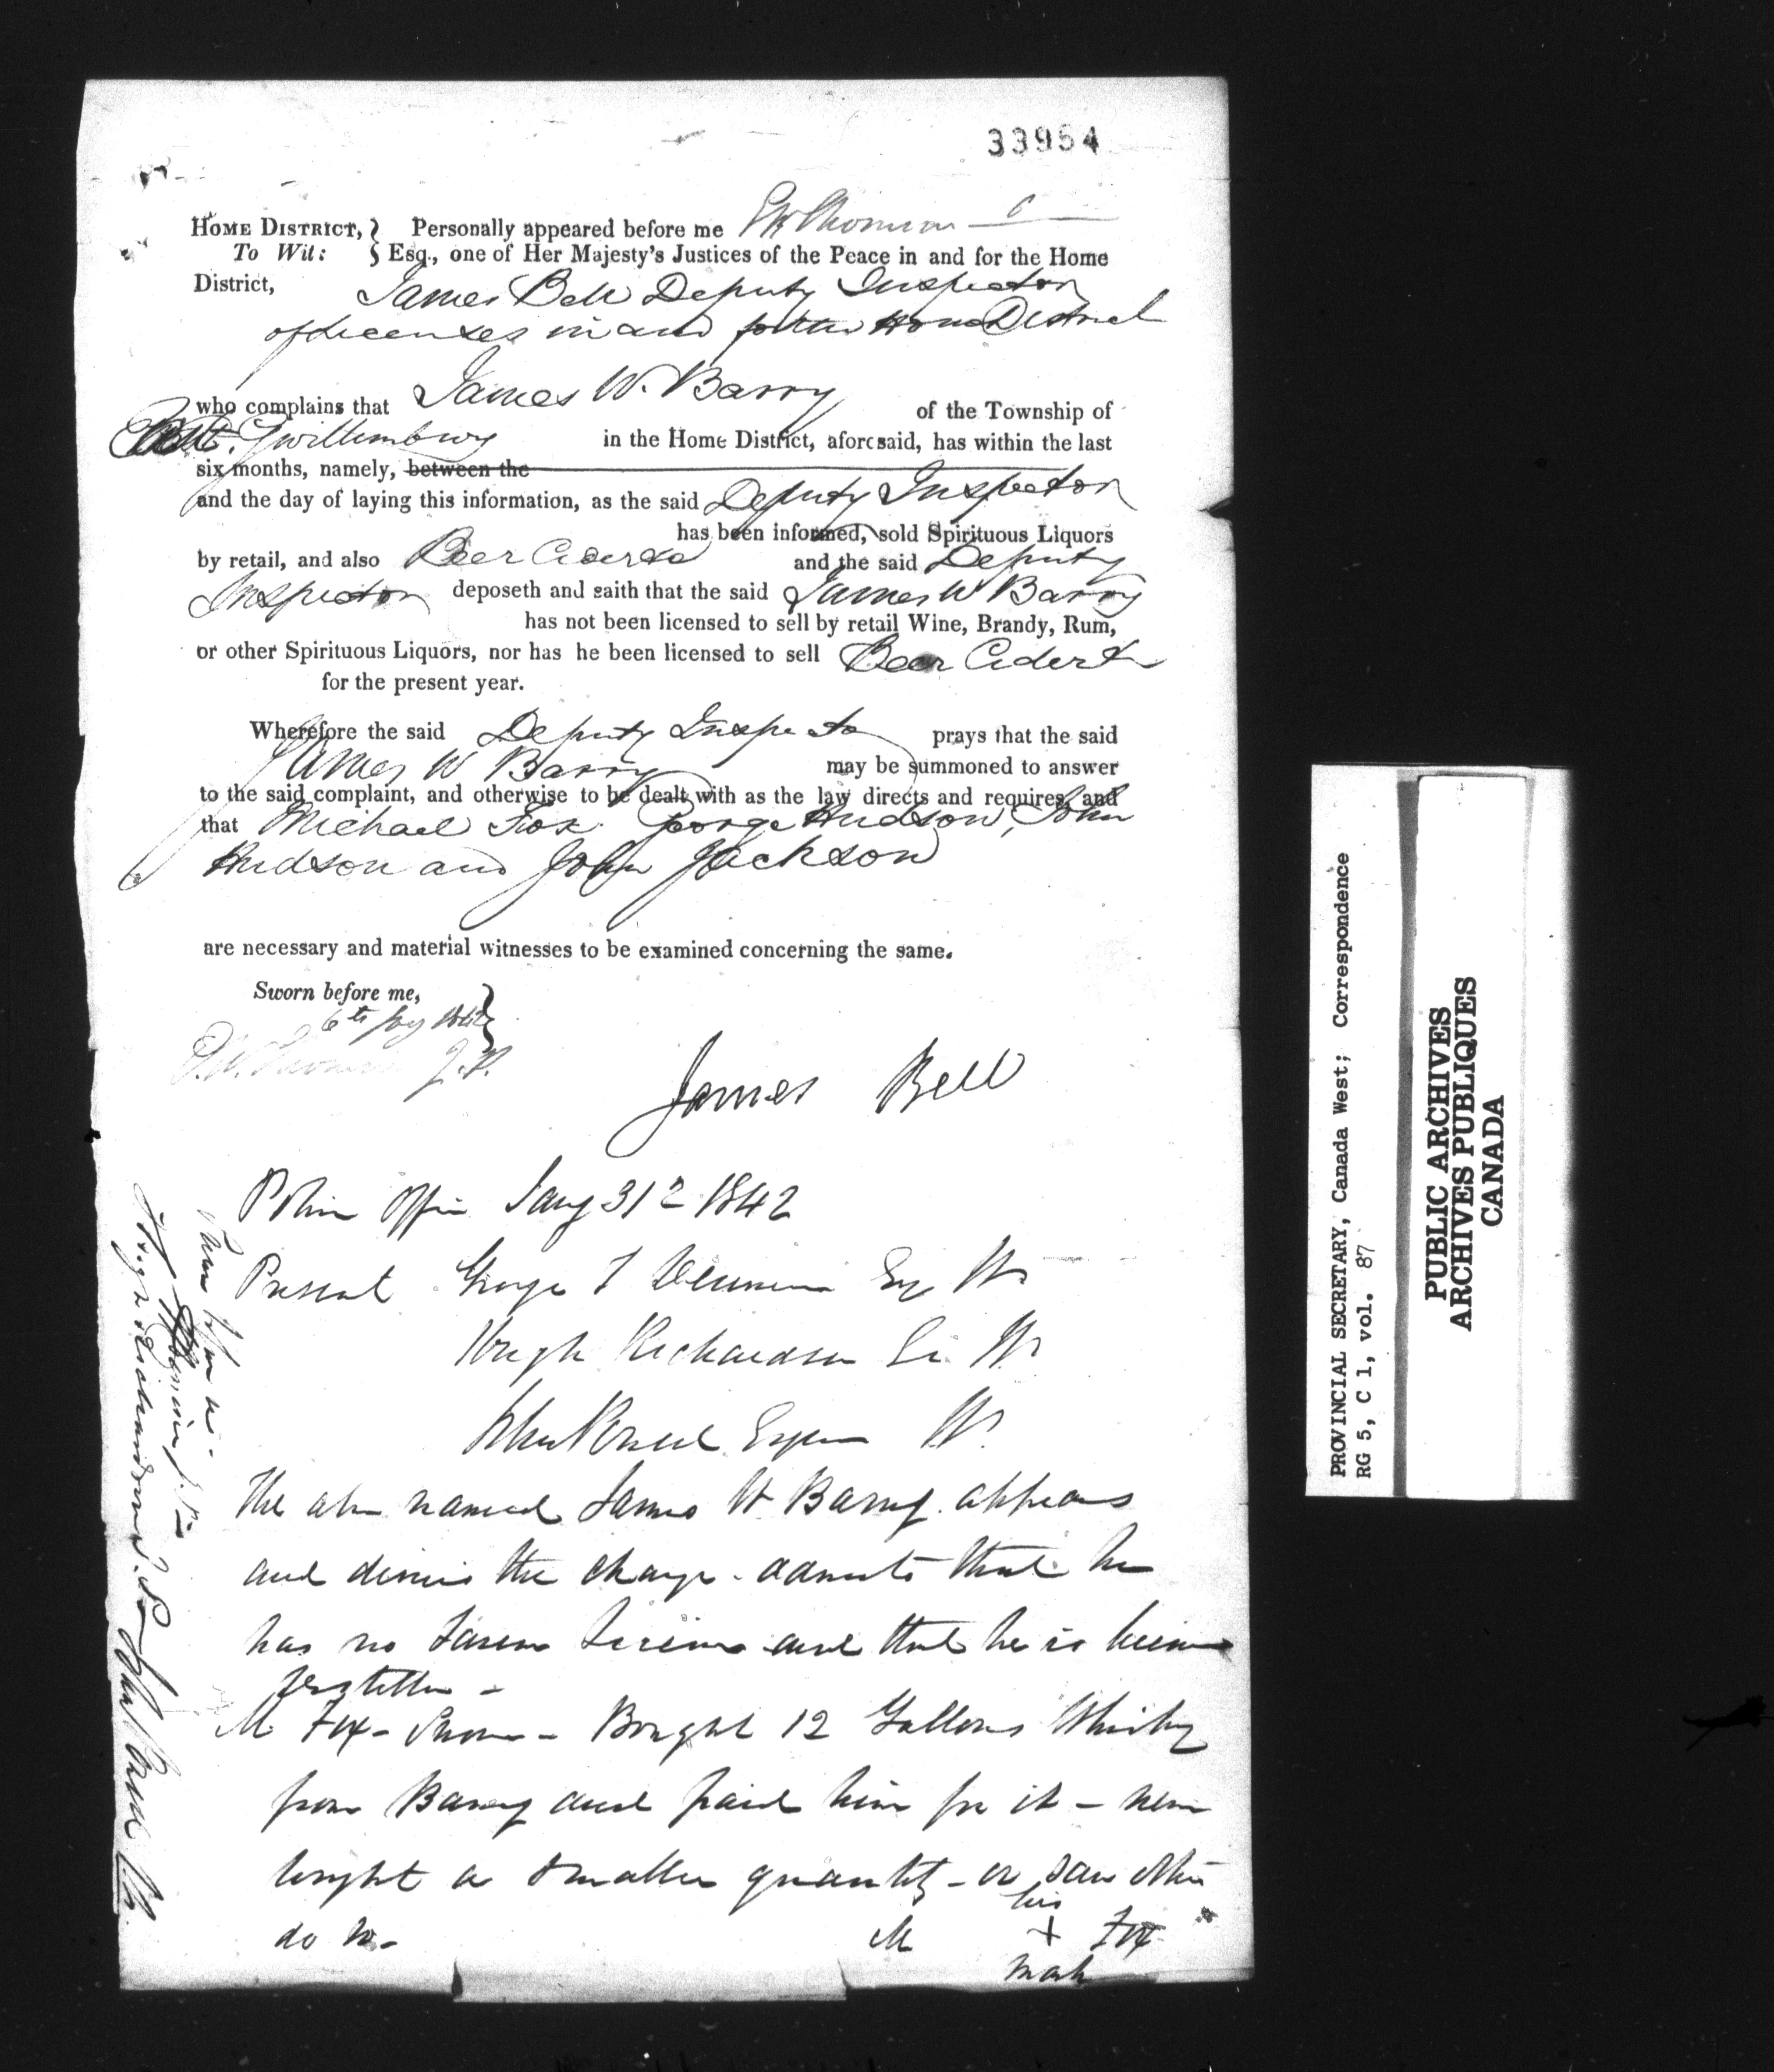 33954
HOME DISTRICT, } Personally appeared before me EW Thomson
To Wit: } Esq., one of Her Majesty's Justices of the Peace in and for the Home
District, James Bell Deputy Inspector
of Licenses in and for the Home District
who complains that James W. Barry of the Township of
East Gwillimbury in the Home District, aforesaid, has within the last
six months, namely, between the
and the day of laying this information, as the said Deputy Inspector
has been informed, sold Spirituous Liquors
by retail, and also Beer Cider &c and the said Deputy
Inspector deposeth and saith that the said James W Barry
has not been licensed to sell by retail Wine, Brandy, Rum,
or other Spirituous Liquors, nor has he been licensed to sell Beer Cider &c
for the present year.
Wherefore the said Deputy Inspector prays that the said
James W Barry may be summoned to answer
to the said complaint, and otherwise to be dealt with as the law directs and requires, and
that Michael Fox George Hudson, John
Hudson and John Jackson
are necessary and material witnesses to be examined concerning the same.
Sworn before me,
6th Jany 1842
E.W. Thomson J.P.
James Bell
Police Office Jany 31st 1842
Present George T Denison Esq
Hugh Richardson
John Powell Esquire
The above named James W Barry appears
and denies the charge - admits that he
has no Tavern License and that he is license
distiller -
M Fox - Sworn - Bought 12 Gallons Whisky
from Barry and paid him for it - never
bought a smaller quantity - or saw others
do so -
his
M + Fox
mark
Hugh Richardson J.P.
John Powell
PROVINCIAL SECRETARY, Canada West; Correspondence
RG 5, C 1, vol. 87
PUBLIC ARCHIVES
ARCHIVES PUBLIQUES
CANADA